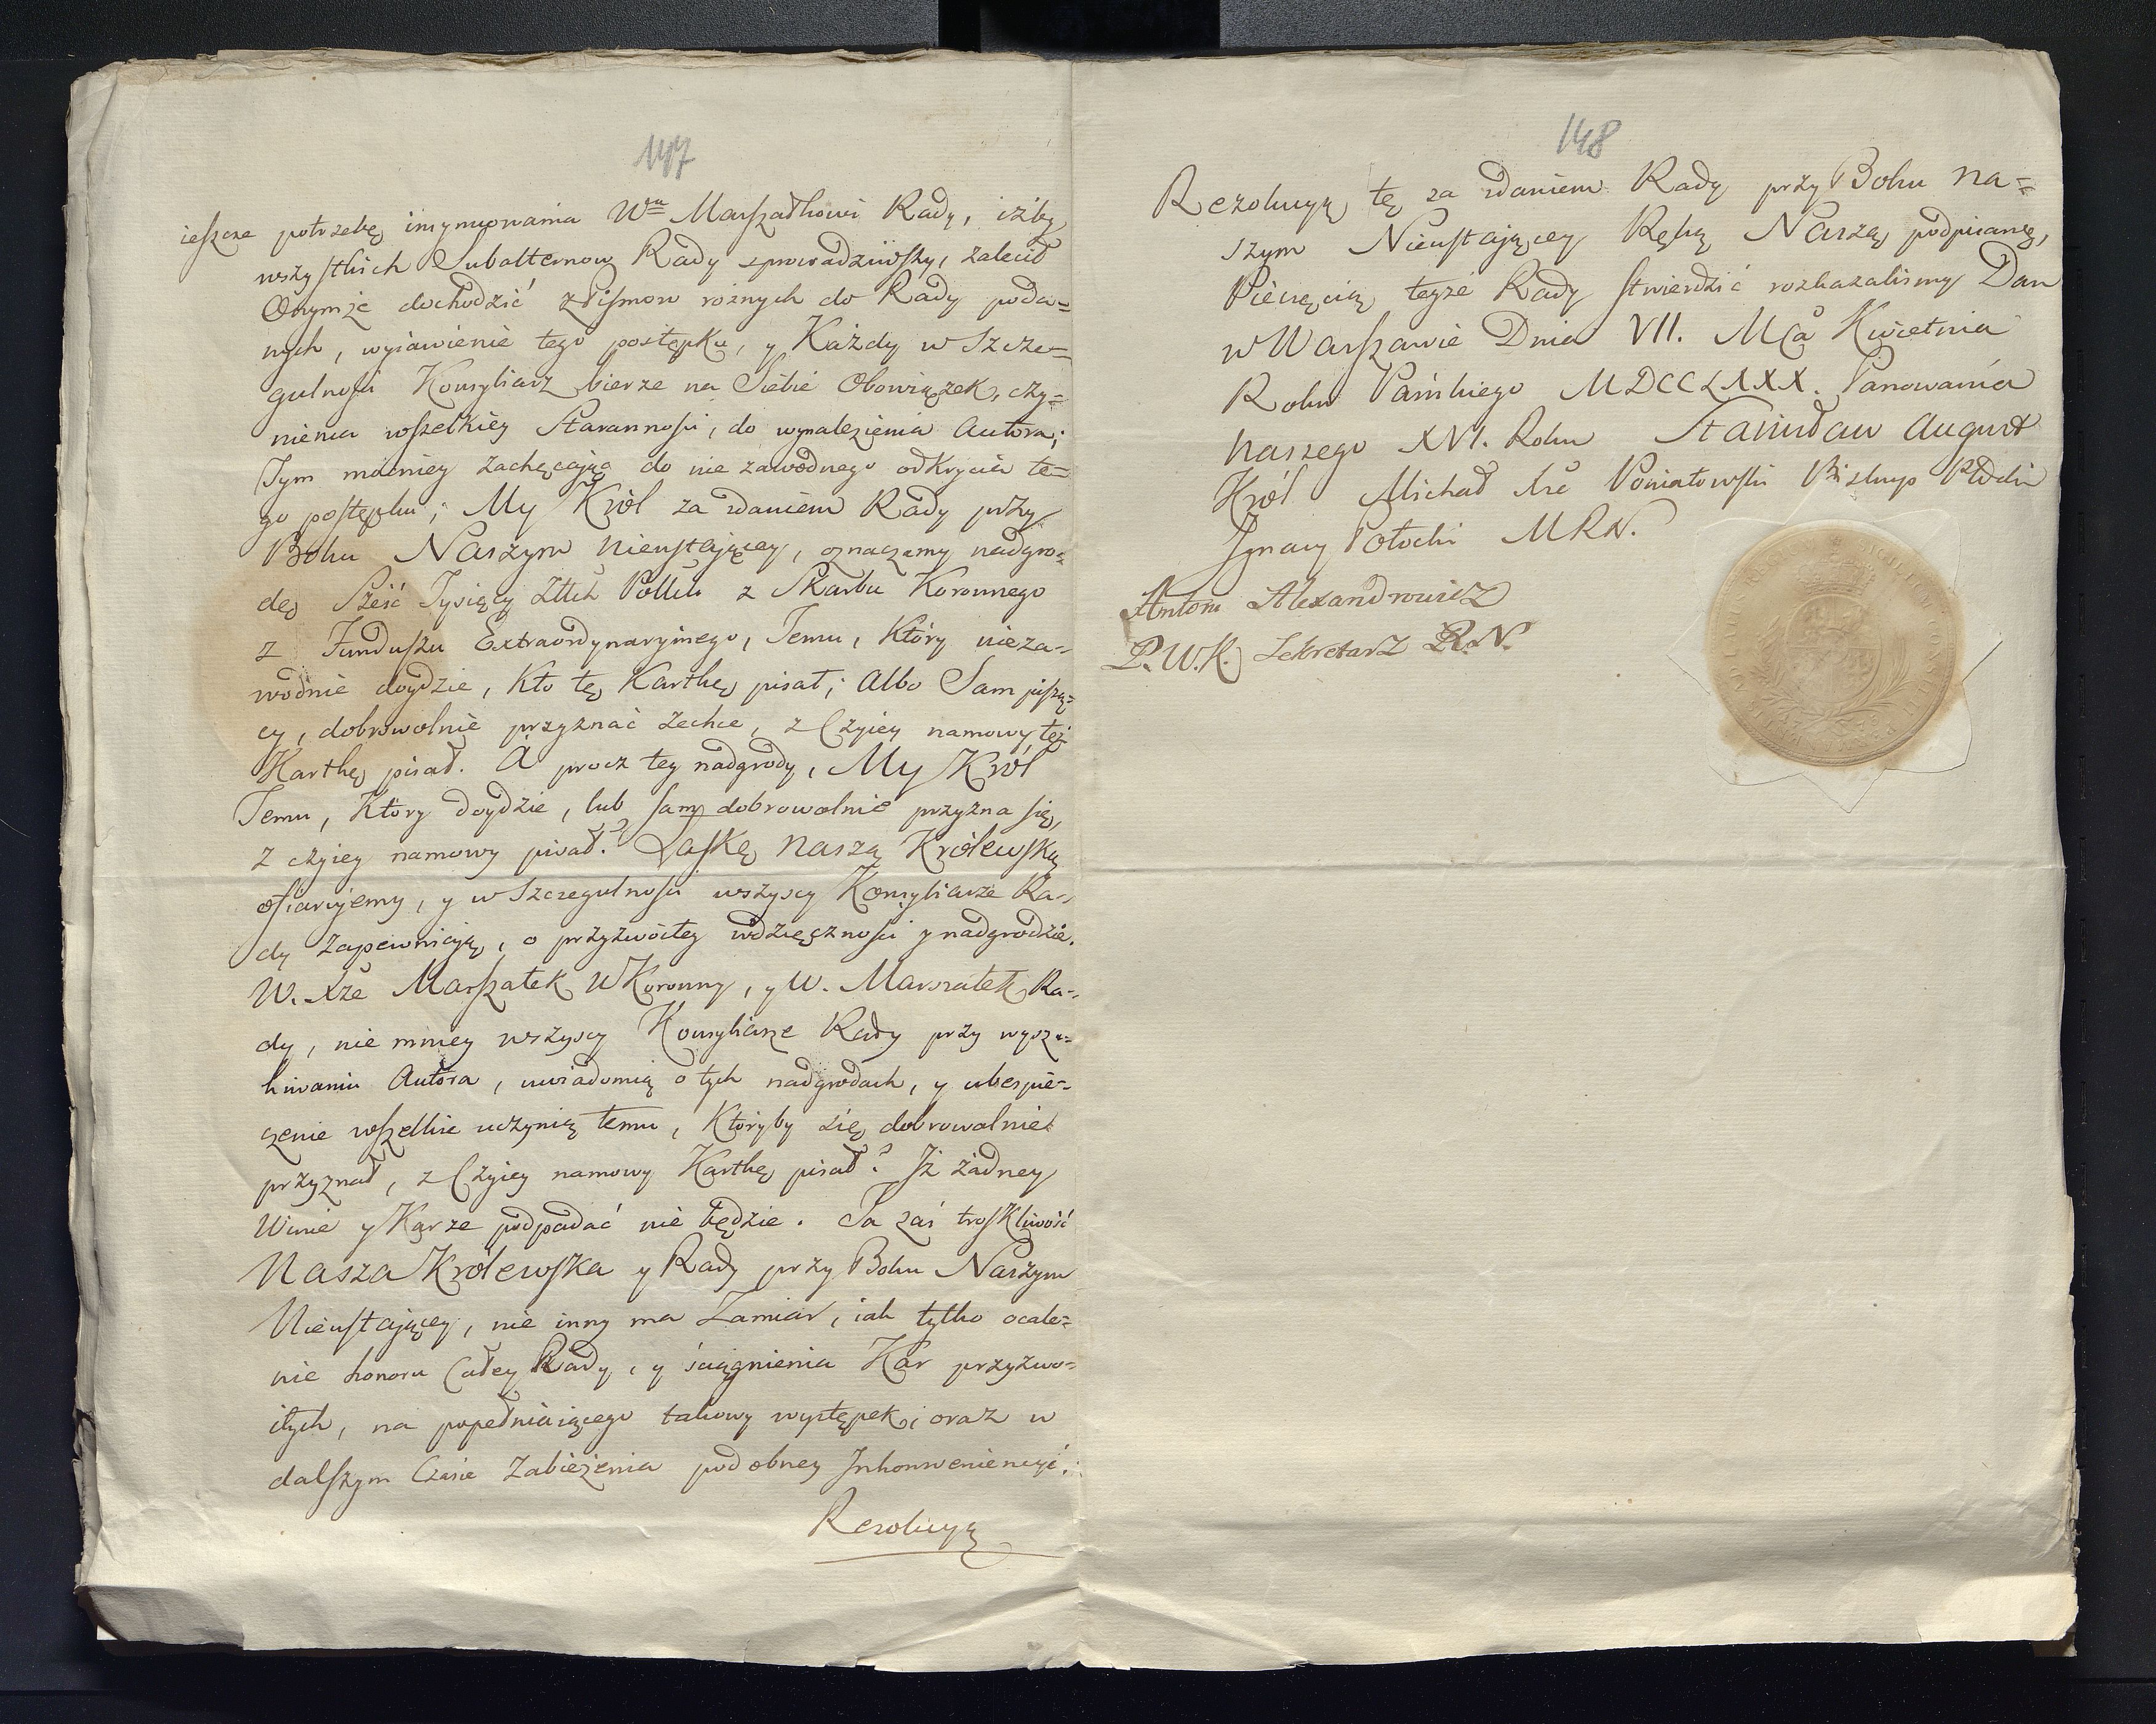 147
ieszcze potrzebę insynuowania Wu Marszałkowi Rady, iżby
wszystkich Subalternow Rady sprowadziwszy, zalecił
Onymże dochodzić z Pismow rożnych do Rady poda=
nych, wyiawienie tego postępku, y Każdy w Szcze=
gulności Konsyliarz bierze na Siebie Obowiązek, czy=
nienia wszelkiey Starannosci, do wynalezienia Autora;
Tym mocniey zachęcaiąc do nie zawodnego odkrycia te=
go postępku; My Król za zdaniem Rady przy
Boku Naszym Nieustaiącey, oznaczamy nadgro=
dę Sześć Tysięcy Złłch Pollch z Skarbu Koronnego
z Funduszu Extraordynaryinego, Temu, Który nieza=
wodnie doydzie, Kto tę Kartkę pisał; albo Sam piszą=
cy, dobrowolnie przyznać zechce, z Czyiey namowy też
Kartkę pisał. A procz tey nadgrody, My Król
Temu, Ktory doydzie, lub sam dobrowolnie przyzna się,
z czyiey namowy pisał? Łaskę Naszą Królewską
ofiaruiemy, y w Szczegulnosci wszyscy Konsyliarze Ra=
dy zapewniaią, o przyzwoitey wdzięcznosci y nadgrodzie.
W. Xże Marszałek WKoronny, y W. Marszałek Ra=
dy, nie mniey wszyscy Konsyliarze Rady przy wyszu=
kiwaniu Autora, uwiadomią o tych nadgrodach, y ubespie=
czenie wszelkie uczynią temu, Któryby się dobrowolnie
przyznał, z Czyiey namowy Kartkę pisał? Iż żadney
Winie y Karze podpadać nie będzie. Ta zaś troskliwość
Nasza Królewska y Rady przy Boku Naszym
Nieustaiącey, nie inny ma Zamiar, iak tylko ocale=
nie honoru Całey Rady, y ściągnienia Kar przyzwo=
itych, na popełniaiącego takowy występek, oraz w
dalszym Czasie Zabieżenia podobney Inkonweniencyi.
Rezolucyą
148
Rezolucyą tę za zdaniem Rady przy Boku Na=
szym Nieustaiącey Ręką Naszą podpisaną,
Pieczęcią teyże Rady stwierdzić rozkazalismy Dan
w Warszawie Dnia VII. Mca Kwietnia
Roku Pańskiego MDCCLXXX. Panowania
Naszego XVI. Roku Stanisław August
Król Michał Xże Poniatowski Biskup Płocki
Ignacy Potocki MRN.
Antoni Alexandrowicz
P.W.K. Sekretarz R.N.